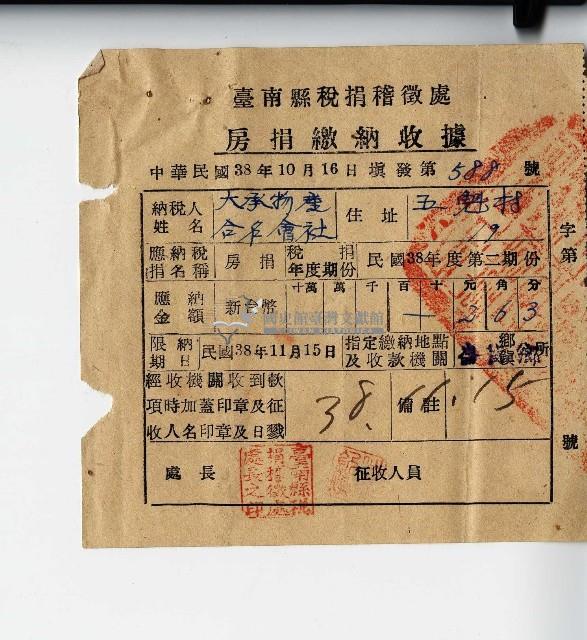 臺南縣稅捐稽徵處
房捐繳納收據
中華民國38年10月16日填發第588號
納稅人姓名 大承物產合名會社 住址 五魁村19
應納稅捐名稱 房捐 稅捐年度期份 民國38年度第二期份
應納金額 新台幣 十萬 萬 千 百 十 元 角 分
一 3 6 3
限納日期 民國38年11月15日 指定繳納地點及收款機關 鄉鎮公所
經收機關收到款項時加蓋印章及征收人名印章及日戳 38.11.15 備註
處長 征收人員
臺南縣稅捐稽徵處處長之印
字第
號
國史館臺灣文獻館